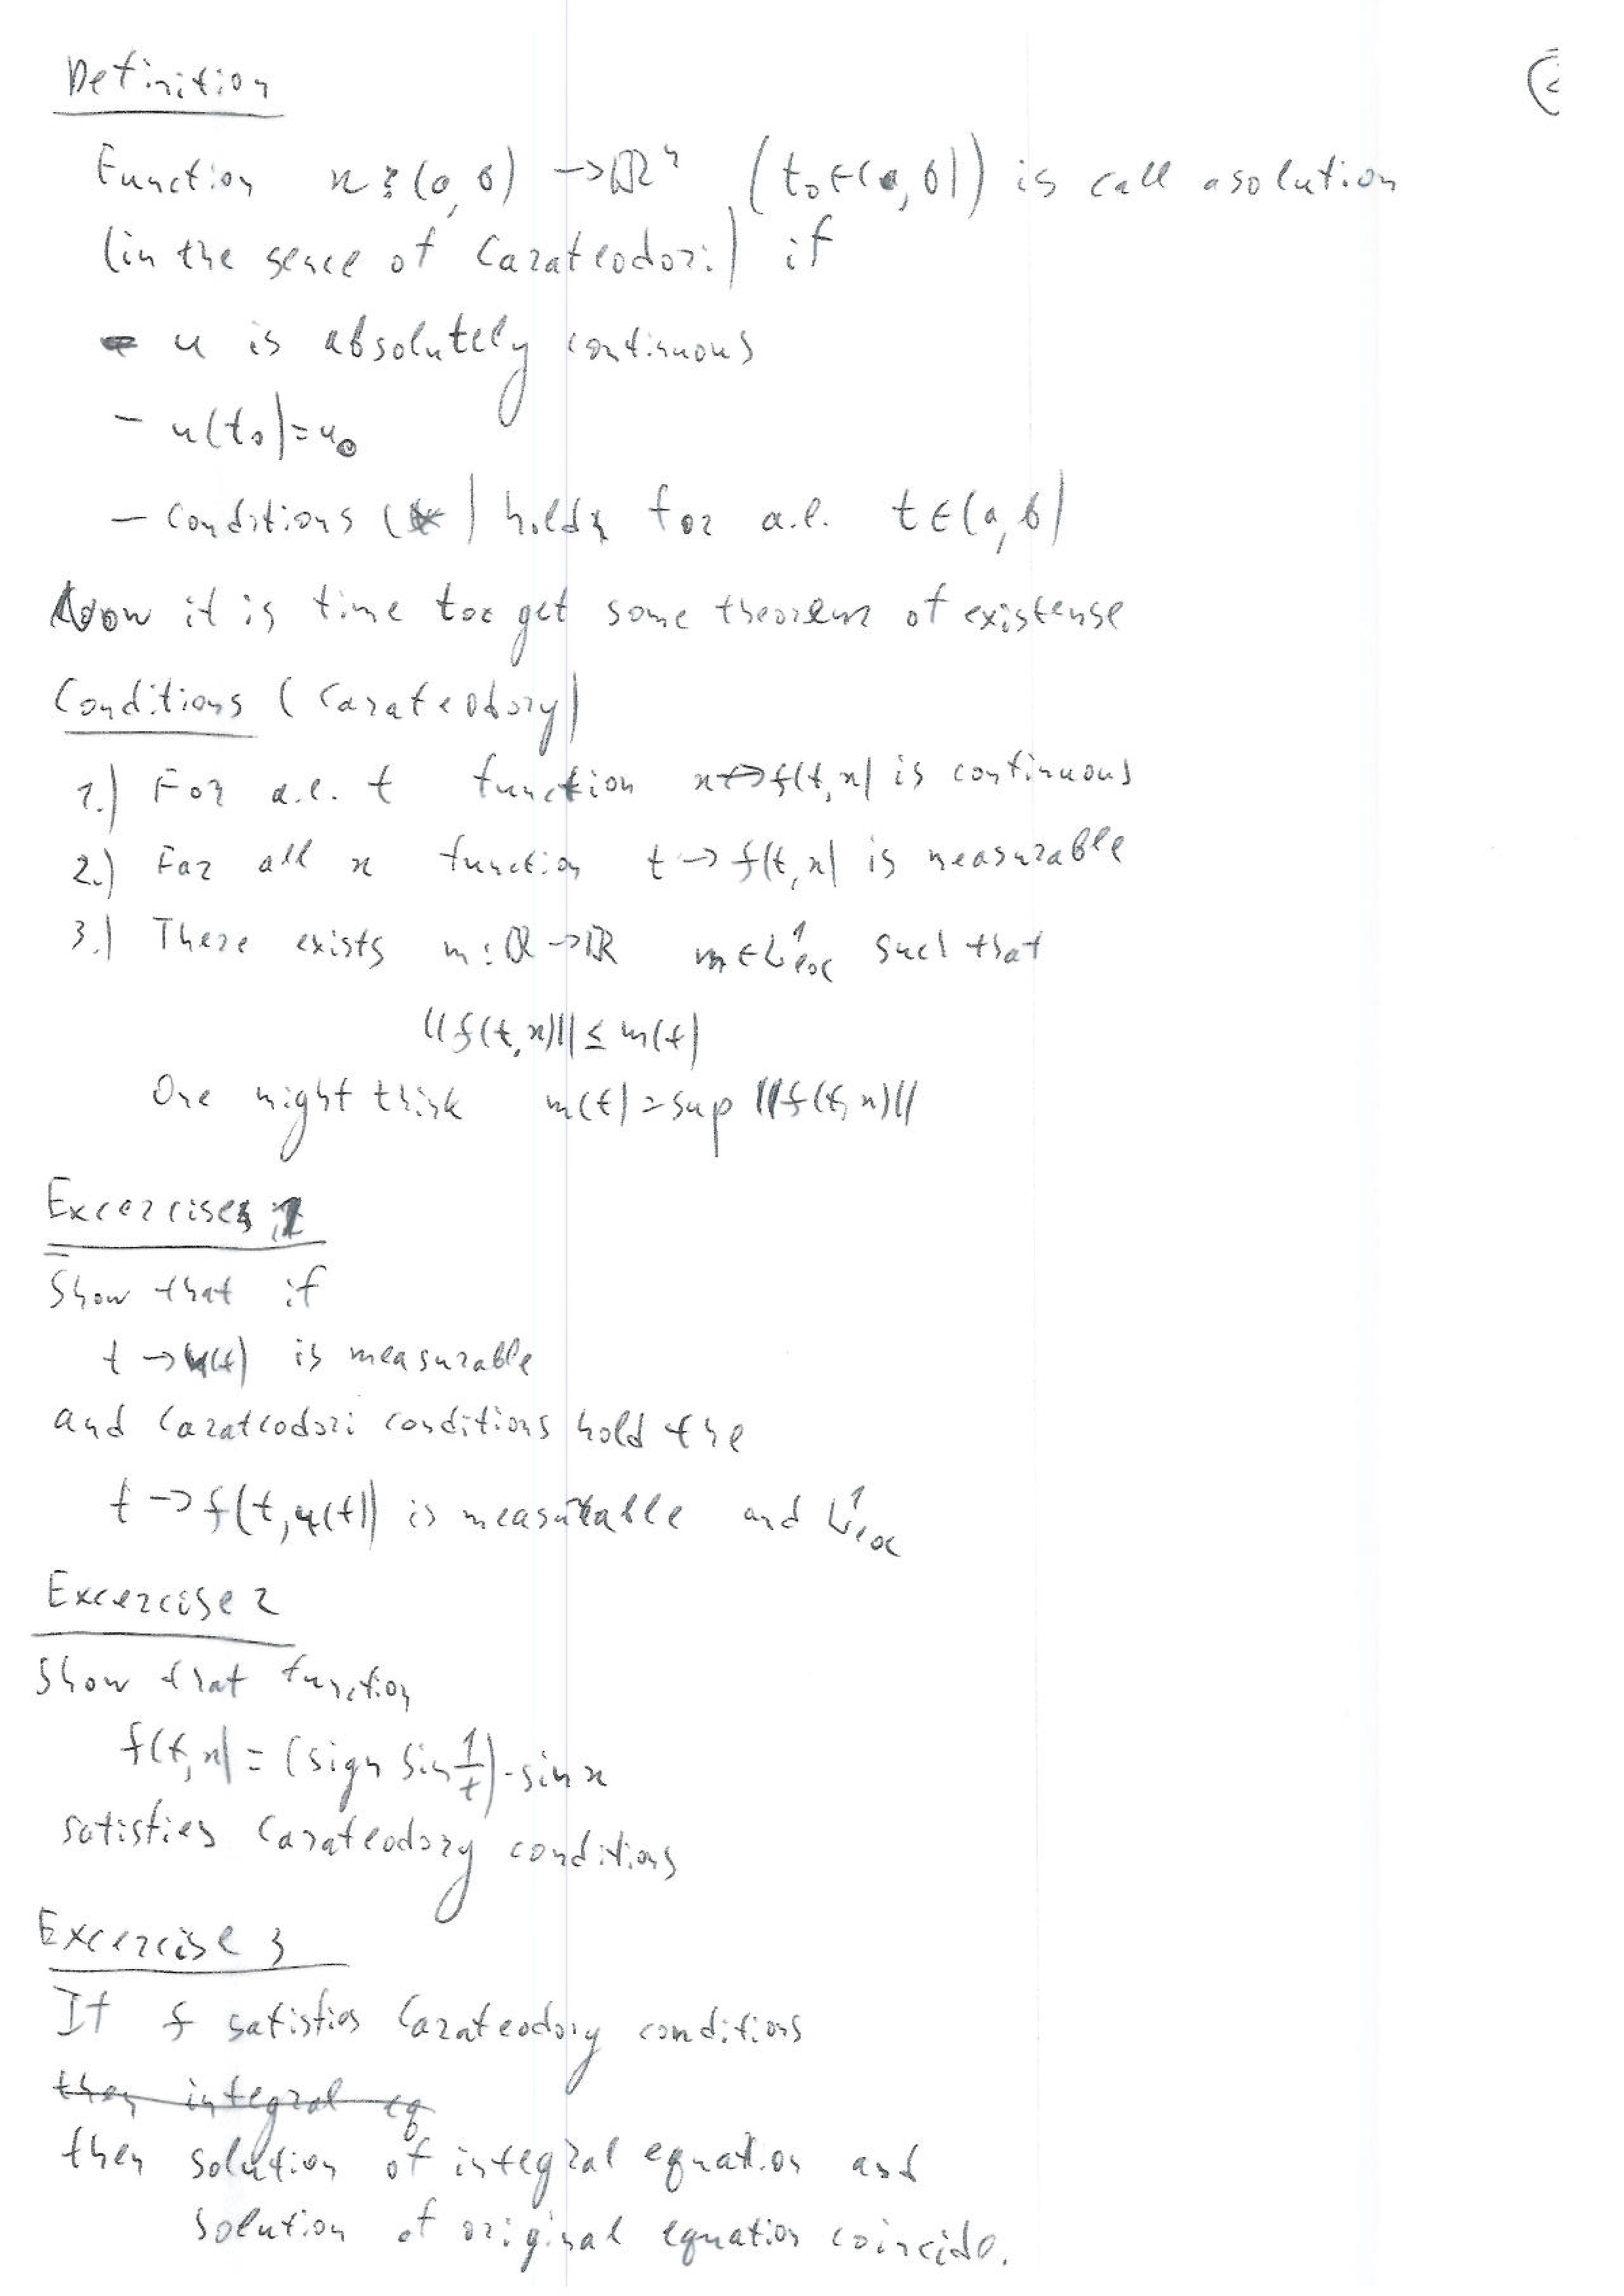 Definition
Function x : (a, b) → ℝⁿ (t₀ ∈ (a, b)) is call a solution
(in the sence of Carateodori) if
- u is absolutely continuous
- u(t₀) = u₀
- Conditions (*) holds for a.e. t ∈ (a, b)
Now it is time too get some theorem of existense
Conditions (Carateodory)
1.) For a.e. t function x → f(t, x) is continuous
2.) For all x function t → f(t, x) is measurable
3.) There exists m : ℝ → ℝ m ∈ L¹loc such that
||f(t, x)|| ≤ m(t)
One might think m(t) = sup ||f(t, x)||
Excercise 1
Show that if
t → u(t) is measurable
and Carateodori conditions hold the
t → f(t, u(t)) is measurable and L¹loc
Excercise 2
Show that function
f(t, x) = (sign sin 1/t) · sin x
satisfies Carateodory conditions
Excercise 3
If f satisfies Carateodory conditions
then integral eq
then solution of integral equation and
solution of original equation coincide.